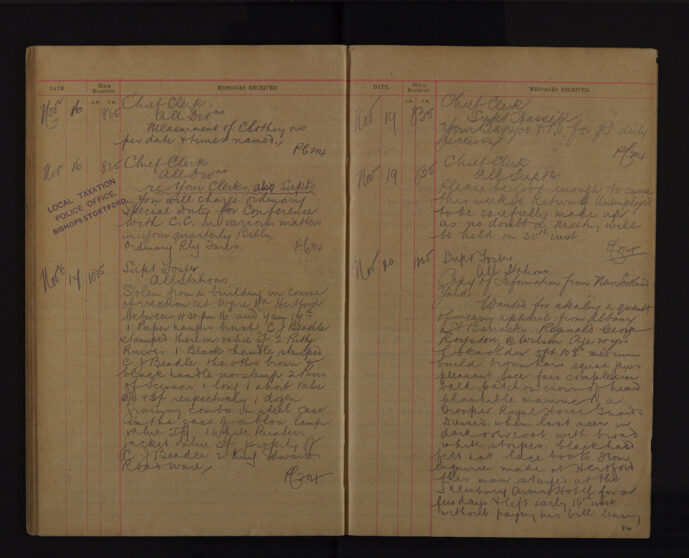 DATE. HOUR RECEIVED. MESSAGES RECEIVED.
A.M. P.M.
Nov 16 8/25 Chief Clerk
All Divns
Measurment of Clothing as
per date & timed names.
PC 274
Nov 16 825 Chief Clerk
All Divns
re Your Clerks also Supts
You will charge ordinary
Special Duty for Conference
with C.C. in various matters
in your quarterly Bills
Ordinary Rly Fares.
PC 274
LOCAL TAXATION
POLICE OFFICE
BISHOPS STORTFORD.
Nov 17 1015 Supt Foster
All Stations
Stolen from a building in course
of erection at Ware Rd Hertford
between 4.30 pm 16 and 7am 17th
1 Paper hangers brush C J Beadle
stamped thereon value 2 Putty
Knives 1 Black handle stamped
C J Beadle the other brown
black handle no stamp 2 Pairs
of Scissors 1 long 1 short value
respectively 1 dozen
graining combs in steel case
in the case 1 blow lamp
value 1 White Painters
jacket value property of
C J Beadle 2 King Edwards
Road Ware
PC 274
DATE. HOUR RECEIVED. MESSAGES RECEIVED.
A.M. P.M.
Nov 19 825 Chief Clerk
Supt
Your for duty
received
PC 274
Nov 19 825 Chief Clerk
All Supts
Please be good enough to cause
this weeks Return Unemployed
to be carefully made up
as no doubt a meeting will
be held on 30th inst
PC 274
Nov 20 Supt Foster
All Stations
Copy of Information from New Scotland
Yard
Wanted for stealing a quantity
of wearing apparel from Albany
St Barracks Reginald George
Royston @ Wilson Age 20 yrs
looks older 5ft 10½ medium
build brown hair square jaws
pleasant face fair complexion
bald patch on crown of head
plausible manner a
Trooper Royal Horse Guards
Dressed when last seen in
dark overcoat with broad
white stripes, black hard
felt hat lace boots From
enquiries made at Hertford
this man stayed at the
Salisbury Arms Hotel for a
few days & left early 16 inst
without paying his bill leaving